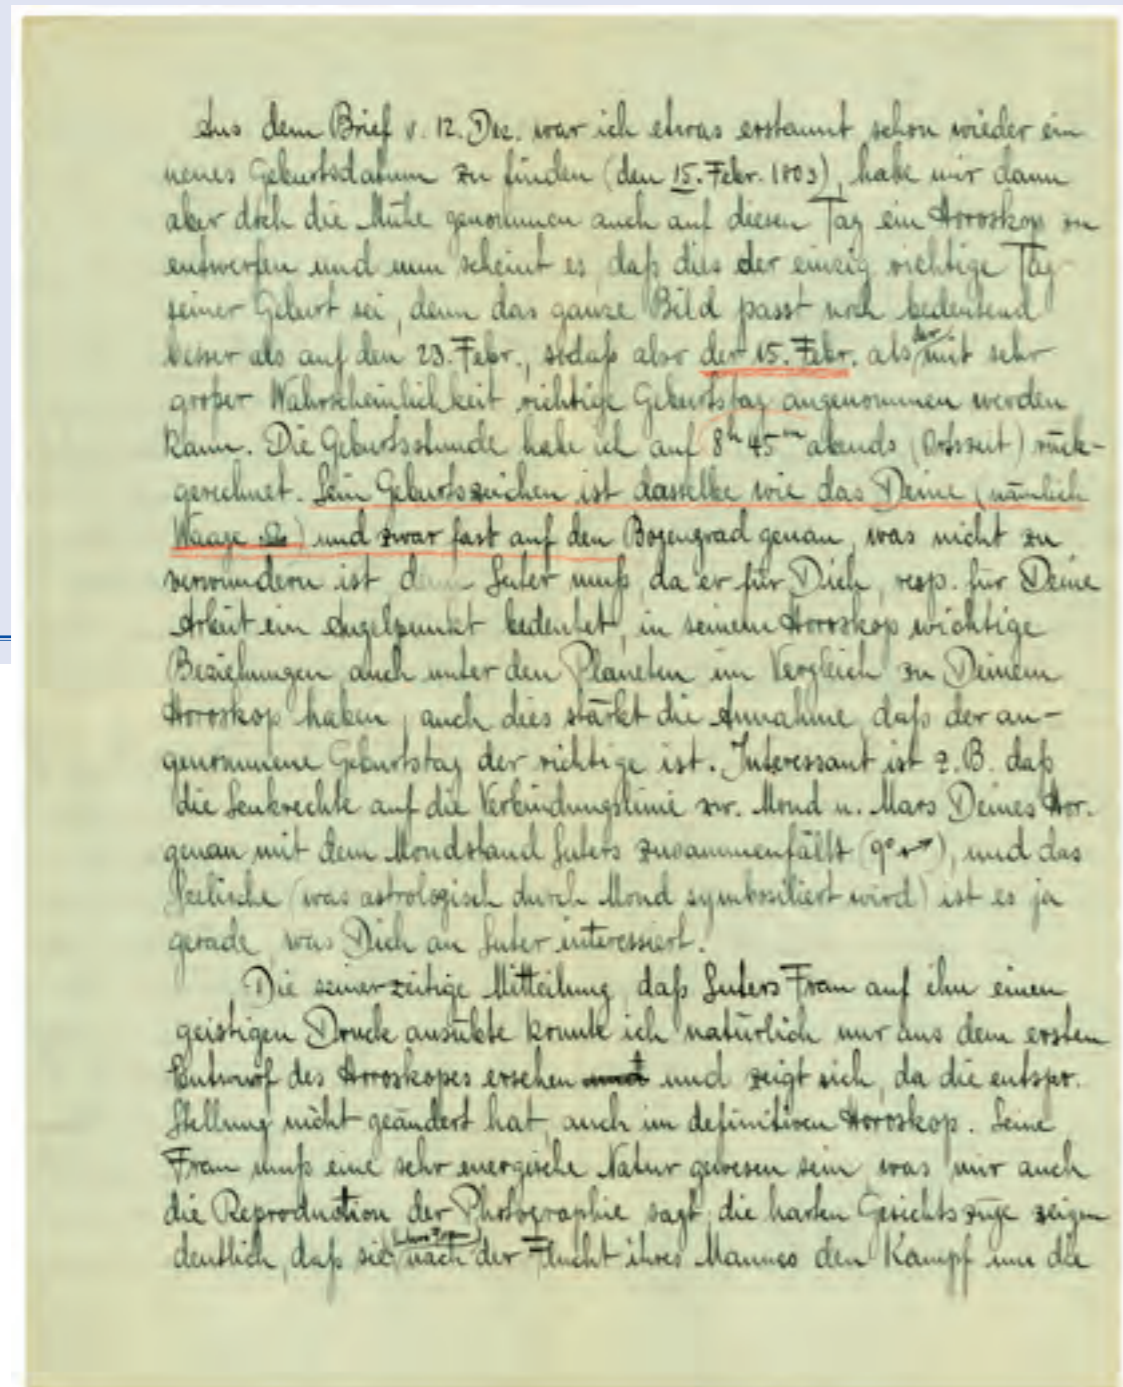 Aus dem Brief v. 12. Dez. war ich etwas erstaunt schon wieder ein
neues Geburtsdatum zu finden (den 15. Febr. 1803), habe mir dann
aber doch die Mühe genommen auch auf diesen Tag ein Horoskop zu
entwerfen und nun scheint es, daß dies der einzig richtige Tag
seiner Geburt sei, denn das ganze Bild passt noch bedeutend
besser als auf den 23. Febr., sodaß also der 15. Febr. als der mit sehr
großer Wahrscheinlichkeit richtige Geburtstag angenommen werden
kann. Die Geburtsstunde habe ich auf 8h 45m abends (Ortszeit) rück-
gerechnet. Sein Geburtszeichen ist dasselbe wie das Deine (nämlich
Waage ♎) und zwar fast auf den Bogengrad genau, was nicht zu
verwundern ist, denn Suter muß, da er für Dich, resp. für Deine
Arbeit ein Angelpunkt bedeutet, in seinem Horoskop wichtige
Beziehungen auch unter den Planeten im Vergleich zu Deinem
Horoskop haben, auch dies stärkt die Annahme, daß der an-
genommene Geburtstag der richtige ist. Interessant ist z.B. daß
die Senkrechte auf die Verbindungslinie zw. Mond u. Mars Deines Hor.
genau mit dem Mondstand Suters zusammenfällt (9° ♐), und das
Seelische (was astrologisch durch Mond symbosiliert wird) ist es ja
gerade, was Dich an Suter interessiert.
Die seinerzeitige Mitteilung, daß Suters Frau auf ihn einen
geistigen Druck ausübte konnte ich natürlich nur aus dem ersten
Entwurf des Horoskopes ersehen und zeigt sich, da die entspr.
Stellung nicht geändert hat, auch im definitiven Horoskop. Seine
Frau muß eine sehr energische Natur gewesen sein, was mir auch
die Reproduction der Photographie sagt, die harten Gesichtszüge zeigen
deutlich, daß sie nach der Flucht ihres Mannes den Kampf um die